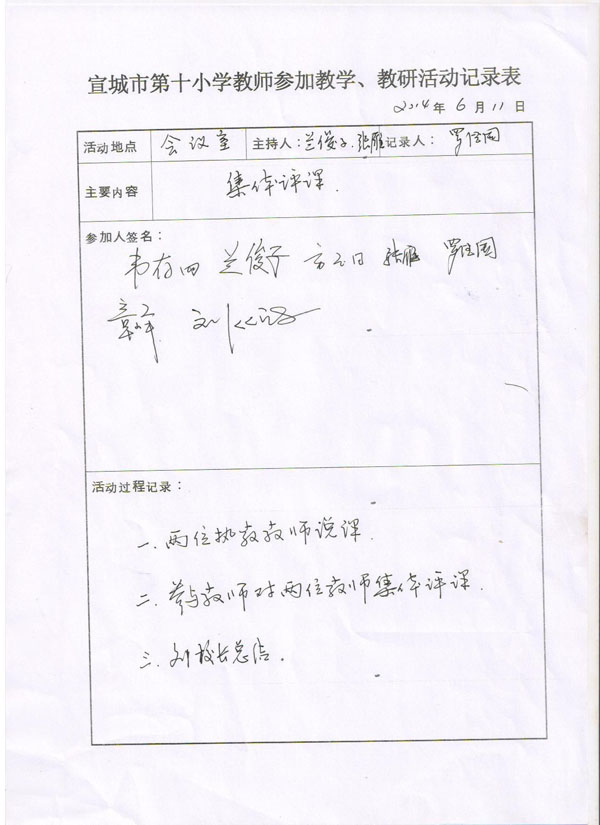 宣城市第十小学教师参加教学、教研活动记录表
2014年6月11日
活动地点 会议室 主持人：兰俊子.张雁 记录人：罗国
主要内容 集体评课.
参加人签名：
韦存四 兰俊子 方 日 张雁 罗国
刘
活动过程记录：
一.两位执教教师说课.
二.参与教师对两位教师集体评课.
三.刘校长总结.